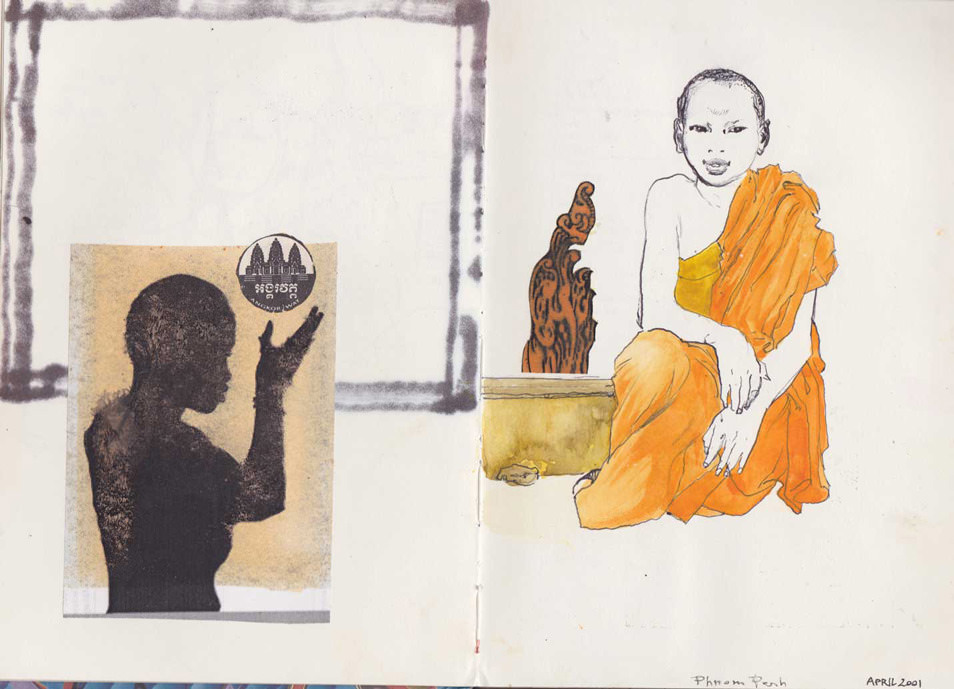 អង្គរវត្ត
ANGKOR WAT
Phnom Penh
APRIL 2001